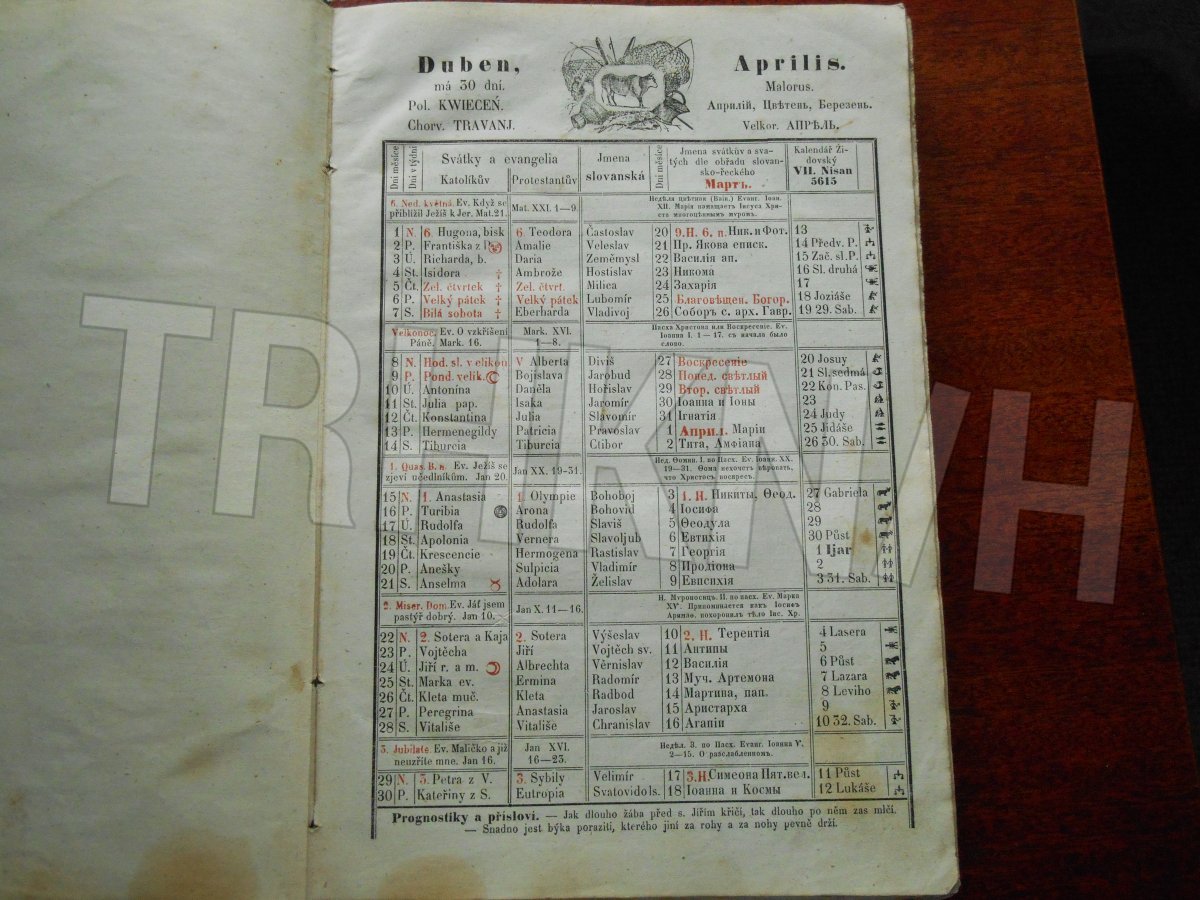 Duben,
má 30 dní.
Pol. KWIECEŃ.
Chorv. TRAVANJ.
Aprilis.
Malorus.
Априлій, Цвѣтень, Березень.
Velkor. АПРѢЛЬ.
Dni měsíce
Dni v týdni
Svátky a evangelia
Katolíkův
Protestantův
Jmena
slovanská
Dni měsíce
Jmena svátkův a sva-
tých dle obřadu slovan-
sko-řeckého
Мартъ.
Kalendář Ži-
dovský
VII. Nisan
5615
6. Ned. květná. Ev. Když se
přiblížil Ježíš k Jer. Mat. 21.
Mat. XXI. 1—9.
Недѣля цвѣтная (Ваія.) Еванг. Іоан.
XII. Марія помазаетъ Іисуса Хри-
ста многоцѣннымъ муромъ.
1 N. 6. Hugona, bisk 6. Teodora Častoslav 20 9.Н. 6. п. Ник. и Фот. 13
2 P. Františka z P. Amalie Veleslav 21 Пр. Якова еписк. 14 Předv. P.
3 Ú. Richarda, b. Daria Zeměmysl 22 Василія ап. 15 Zač. sl. P.
4 St. Isidora † Ambrože Hostislav 23 Никона 16 Sl. druhá
5 Čt. Zel. čtvrtek † Zel. čtvrt. Milica 24 Захарія 17
6 P. Velký pátek † Velký pátek Lubomír 25 Благовѣщен. Богор. 18 Joziáše
7 S. Bílá sobota † Eberharda Vladivoj 26 Соборъ с. арх. Гавр. 19 29. Sab.
Velkonoc. Ev. O vzkříšení
Páně. Mark. 16.
Mark. XVI.
1—8.
Пасха Христова или Воскресеніе. Ев.
Іоанна I. 1 — 17. съ начала было
слово.
8 N. Hod. sl. velikon V Alberta Diviš 27 Воскресеніе 20 Josuy
9 P. Pond. velik. Bojislava Jarobud 28 Понед. свѣтлый 21 Sl. sedmá
10 Ú. Antonína Daněla Hořislav 29 Втор. свѣтлый 22 Kon. Pas.
11 St. Julia pap. Isaka Jaromír 30 Іоанна и Іоны 23
12 Čt. Konstantina Julia Slavomír 31 Игнатія 24 Judy
13 P. Hermenegildy Patricia Pravoslav 1 Април. Маріи 25 Jidáše
14 S. Tiburcia Tiburcia Ctibor 2 Тита, Амфіана 26 30. Sab.
1. Quas. B. n. Ev. Ježíš se
zjeví učedlníkům. Jan 20.
Jan XX. 19-31.
Нед. Ѳомин. I. по Пасх. Ев. Іоанн. XX.
19—31. Ѳома нехочетъ вѣровать,
что Христосъ воскресъ.
15 N. 1. Anastasia 1. Olympie Bohoboj 3 1. Н. Никиты, Ѳеод. 27 Gabriela
16 P. Turibia Arona Bohovid 4 Іосифа 28
17 Ú. Rudolfa Rudolfa Slaviš 5 Ѳеодула 29
18 St. Apolonia Vernera Slavoljub 6 Евтихія 30 Půst
19 Čt. Krescencie Hermogena Rastislav 7 Георгія 1 Ijar
20 P. Anešky Sulpicia Vladimír 8 Иродіона 2
21 S. Anselma Adolara Želislav 9 Евпсихія 3 31. Sab.
2. Miser. Dom. Ev. Jáť jsem
pastýř dobrý. Jan 10.
Jan X. 11—16.
Н. Муроносицъ. II. по пасх. Ев. Марка
XV. Припоминается какъ Іосифъ
Аримаѳ. похоронилъ тѣло Іис. Хр.
22 N. 2. Sotera a Kaja 2. Sotera Výšeslav 10 2. Н. Терентія 4 Lasera
23 P. Vojtěcha Jiří Vojtěch sv. 11 Антипы 5
24 Ú. Jiří r. a m. Albrechta Věrnislav 12 Василія 6 Půst
25 St. Marka ev. Ermina Radomír 13 Муч. Артемона 7 Lazara
26 Čt. Kleta muč. Kleta Radbod 14 Мартина, пап. 8 Leviho
27 P. Peregrina Anastasia Jaroslav 15 Аристарха 9
28 S. Vitališe Vitališe Chranislav 16 Агапіи 10 32. Sab.
3. Jubilate. Ev. Maličko a již
neuzříte mne. Jan 16.
Jan XVI.
16—23.
Недѣл. 3. по Пасх. Еванг. Іоанна V,
2—15. О разслабленномъ.
29 N. 3. Petra z V. 3. Sybily Velimír 17 3.Н. Симеона Пят. вел. 11 Půst
30 P. Kateřiny z S. Eutropia Svatovidols. 18 Іоанна и Космы 12 Lukáše
Prognostiky a přísloví. — Jak dlouho žába před s. Jiřím křičí, tak dlouho po něm zas mlčí.
— Snadno jest býka poraziti, kterého jiní za rohy a za nohy pevně drží.